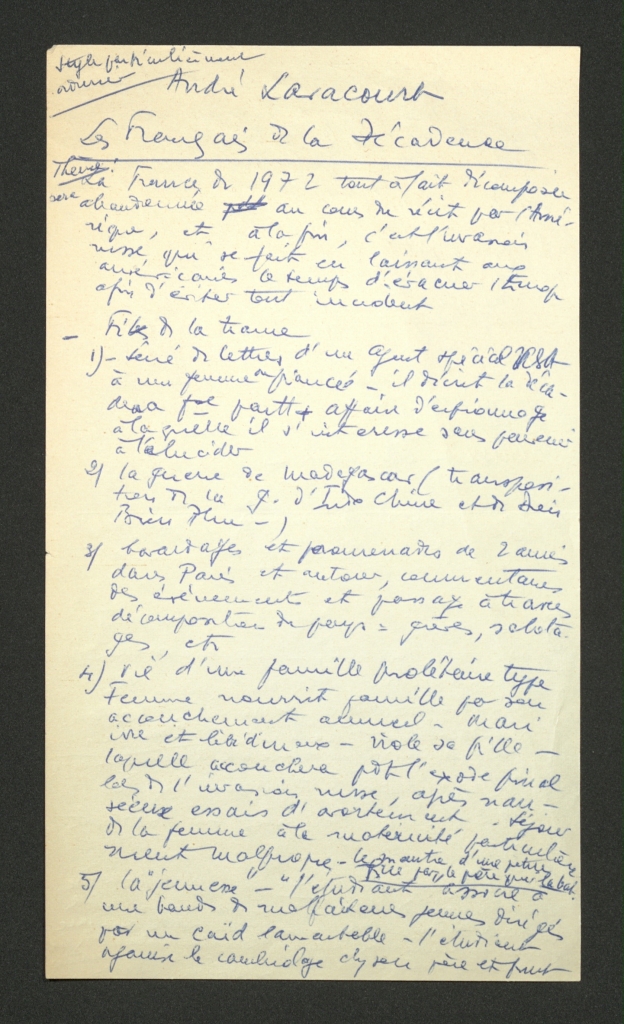 Style particulièrement
ordurier
André Lavacourt
Les Français de la Décadence
Thème:
La France de 1972 tout à fait décomposée
sera abandonnée au cours du récit par l'Amé-
rique, et à la fin, c'est l'invasion
russe qui se fait en laissant aux
américains le temps d'évacuer l'Europe
afin d'éviter tout incident
- Fils de la trame
1) - série de lettres d'un agent spécial USA
à une jeune fiancée - il décrit la déca-
dence affaire d'espionnage
à laquelle il s'intéresse sans parvenir
à l'élucider
2) la guerre de Madagascar (transposi-
tion de la g. d'Indo Chine et de Dien
Bien Phu - )
3) bavardages et promenades de 2 amis
dans Paris et autour, commentaires
des événements et passage à travers
décomposition du pays = grèves, sabota-
ges, etc
4) vie d'une famille prolétaire type
Femme nourrit famille par son
accouchement annuel - mari
ivre et libidineux - viole sa fille -
laquelle accouchera pdt l'exode final
lors de l'invasion russe, après nom-
breux essais d'avortement - Séjour
de la femme à la maternité particulière-
ment malpropre - le meurtre d'une petite
fille par le père
5) la "jeunesse" - "l'étudiant associé à
une bande de malfaiteurs jeunes dirigés
par un caïd - l'étudiant
organise le cambriolage chez son père et